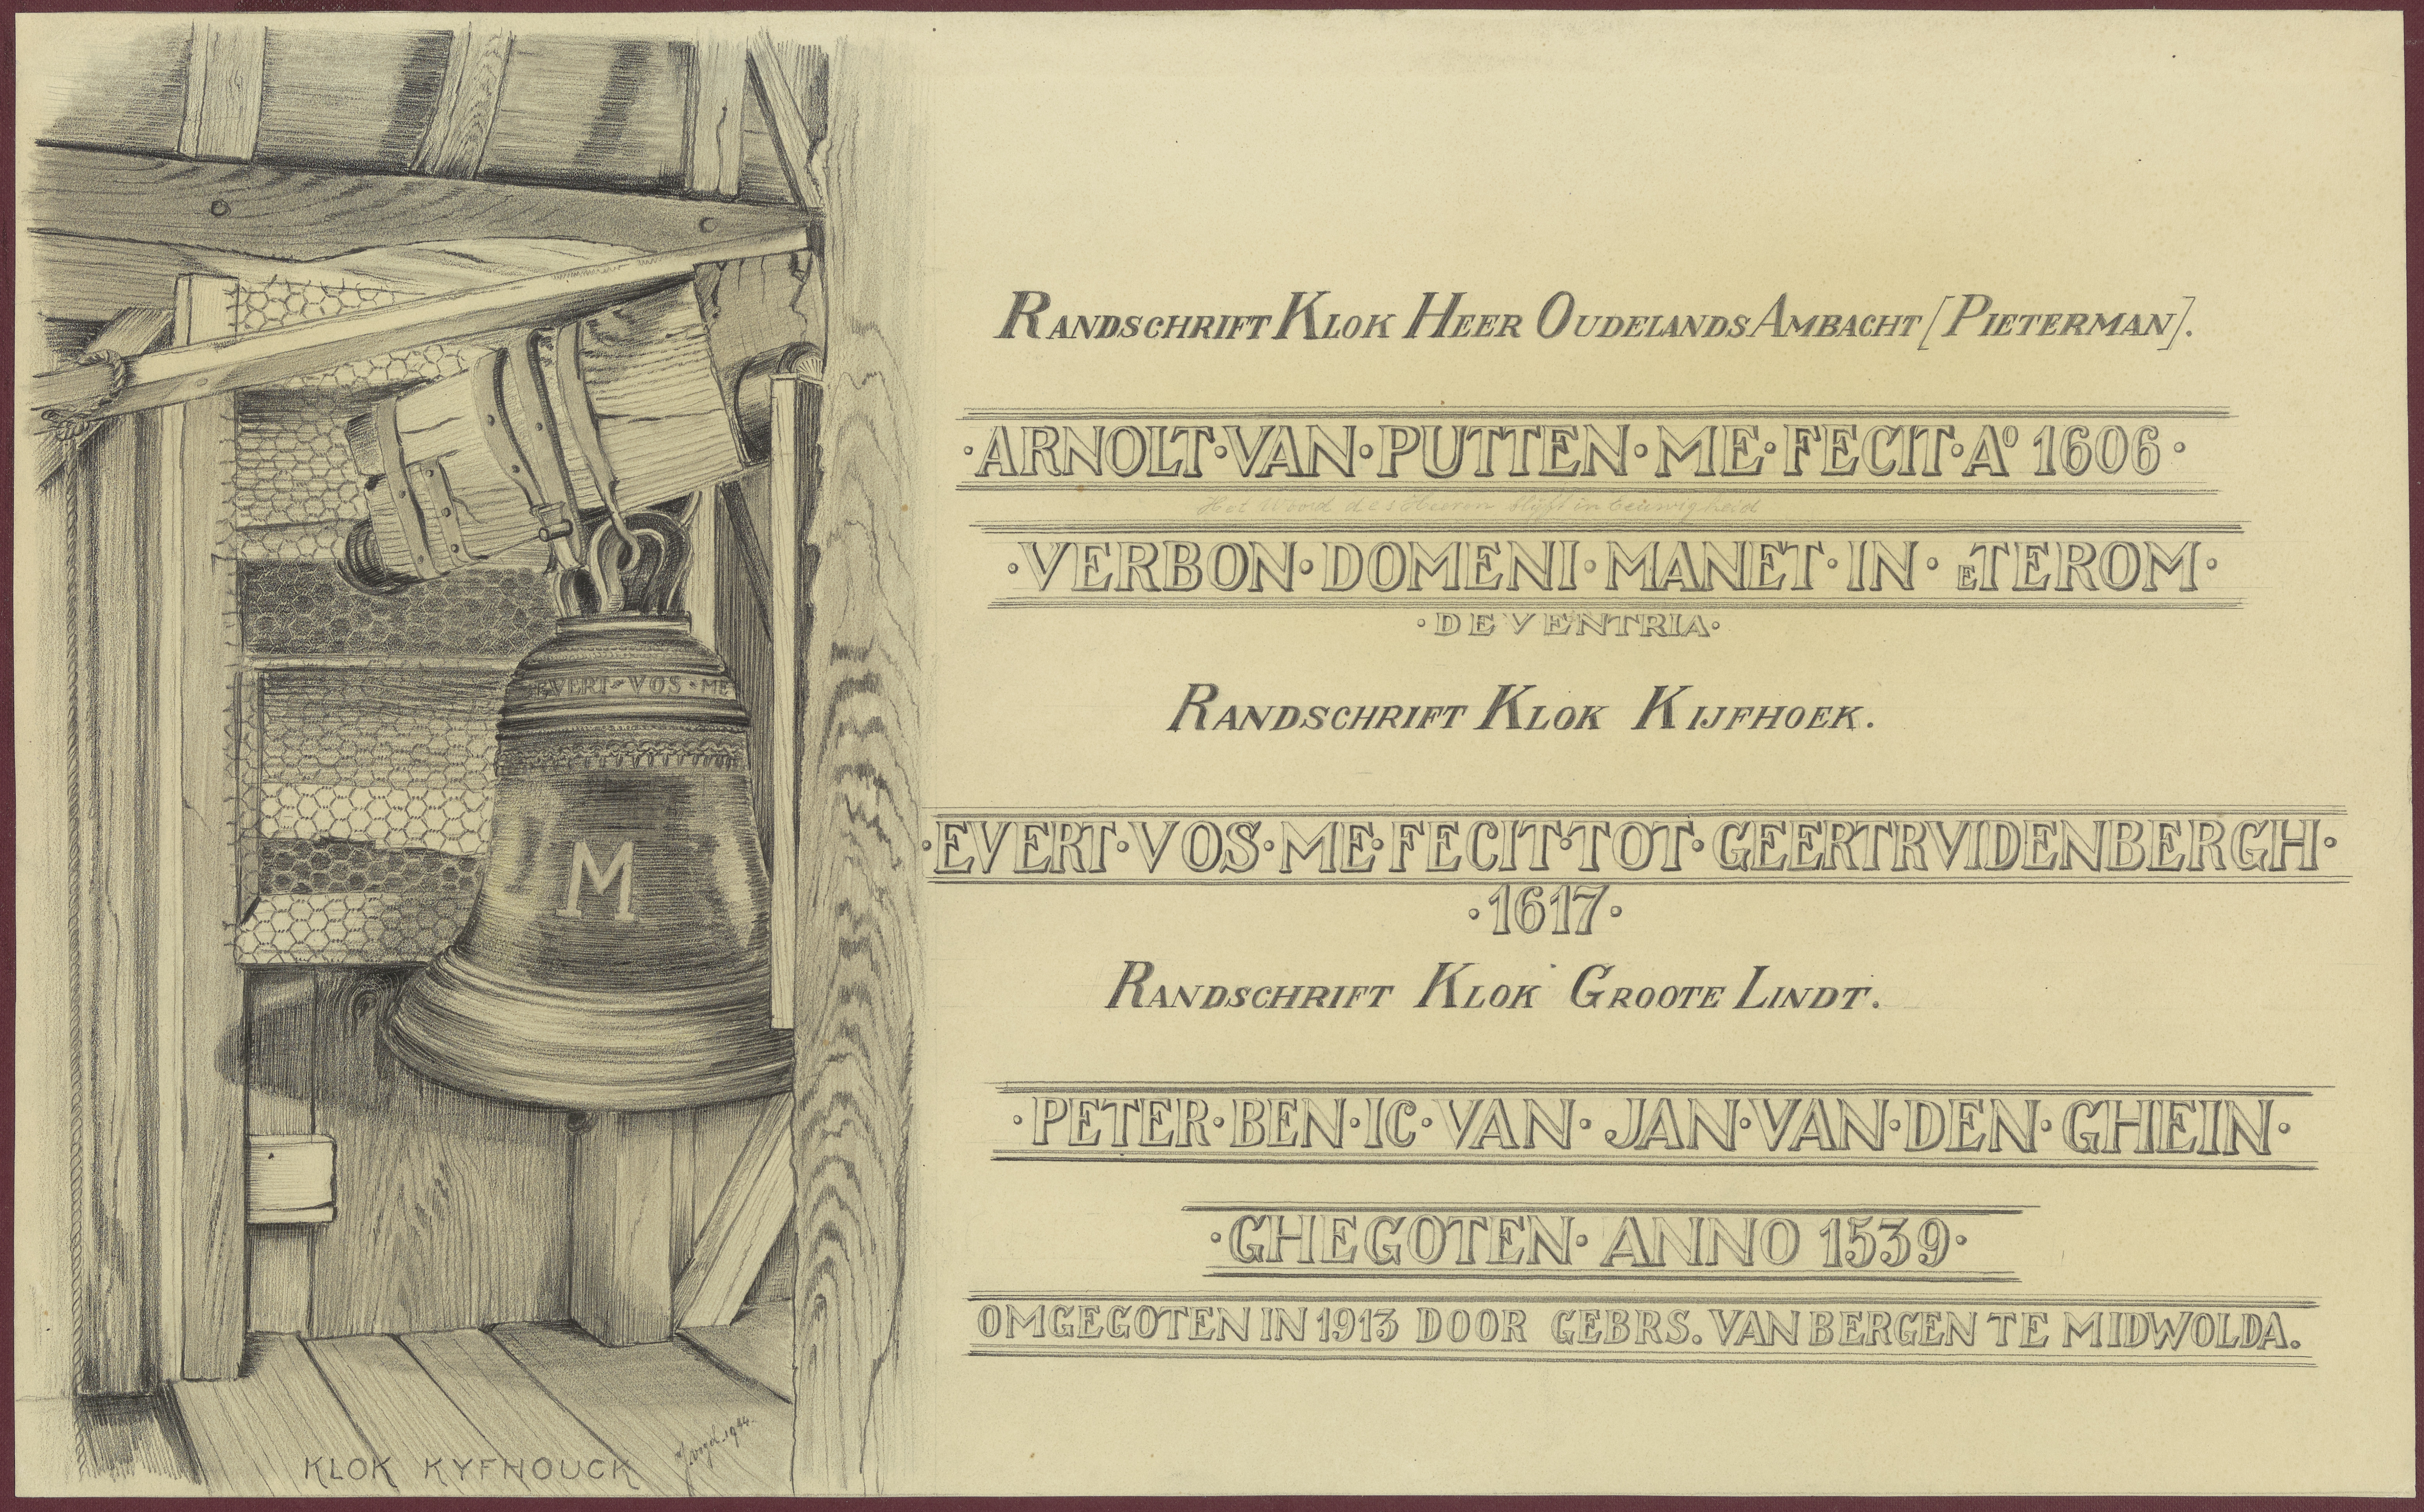 RANDSCHRIFT KLOK HEER OUDELANDS AMBACHT [PIETERMAN].
·ARNOLT·VAN·PUTTEN·ME·FECIT·Aº 1606·
Het Woord des Heeren blijft in eeuwigheid
·VERBON·DOMENI·MANET·IN·ETEROM·
·DEVENTRIA·
RANDSCHRIFT KLOK KIJFHOEK.
·EVERT·VOS·ME·FECIT·TOT·GEERTRVIDENBERGH·
·1617·
RANDSCHRIFT KLOK GROOTE LINDT.
·PETER·BEN·IC·VAN·JAN·VAN·DEN·GHEIN·
·GHEGOTEN·ANNO 1539·
OMGEGOTEN IN 1913 DOOR GEBRS. VAN BERGEN TE MIDWOLDA.
EVERT·VOS·ME
M
KLOK KYFHOUCK
1944